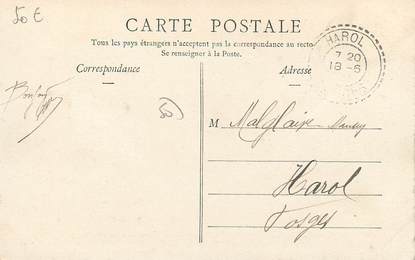 50 €
CARTE POSTALE
Tous les pays étrangers n'acceptent pas la correspondance au recto
Se renseigner à la Poste.
Correspondance
Adresse
HAROL
7 20
18 -6
50
M
Harol
Vosges